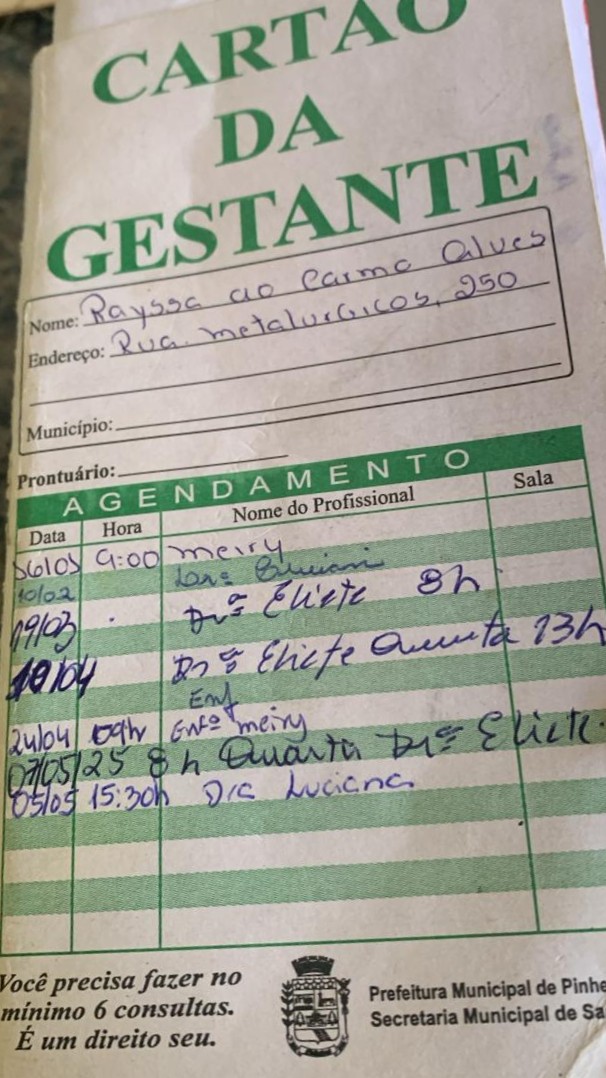 CARTÃO
DA
GESTANTE
Nome: Rayssa do Carmo Alves
Endereço: Rua. metalurgicos, 250
Município:
Prontuário:
AGENDAMENTO
Data Hora Nome do Profissional Sala
9:00 meiry
10/02
19/03 Drª Eliete 8h
10/04 Drª Eliete Quinta 13h
Enf
24/04 09hr Enfª meiry
07/05/25 8h Quarta Drª Eliete.
05/05 15:30h Dra Luciana
Você precisa fazer no
mínimo 6 consultas.
É um direito seu.
Prefeitura Municipal de Pinhe
Secretaria Municipal de Sa